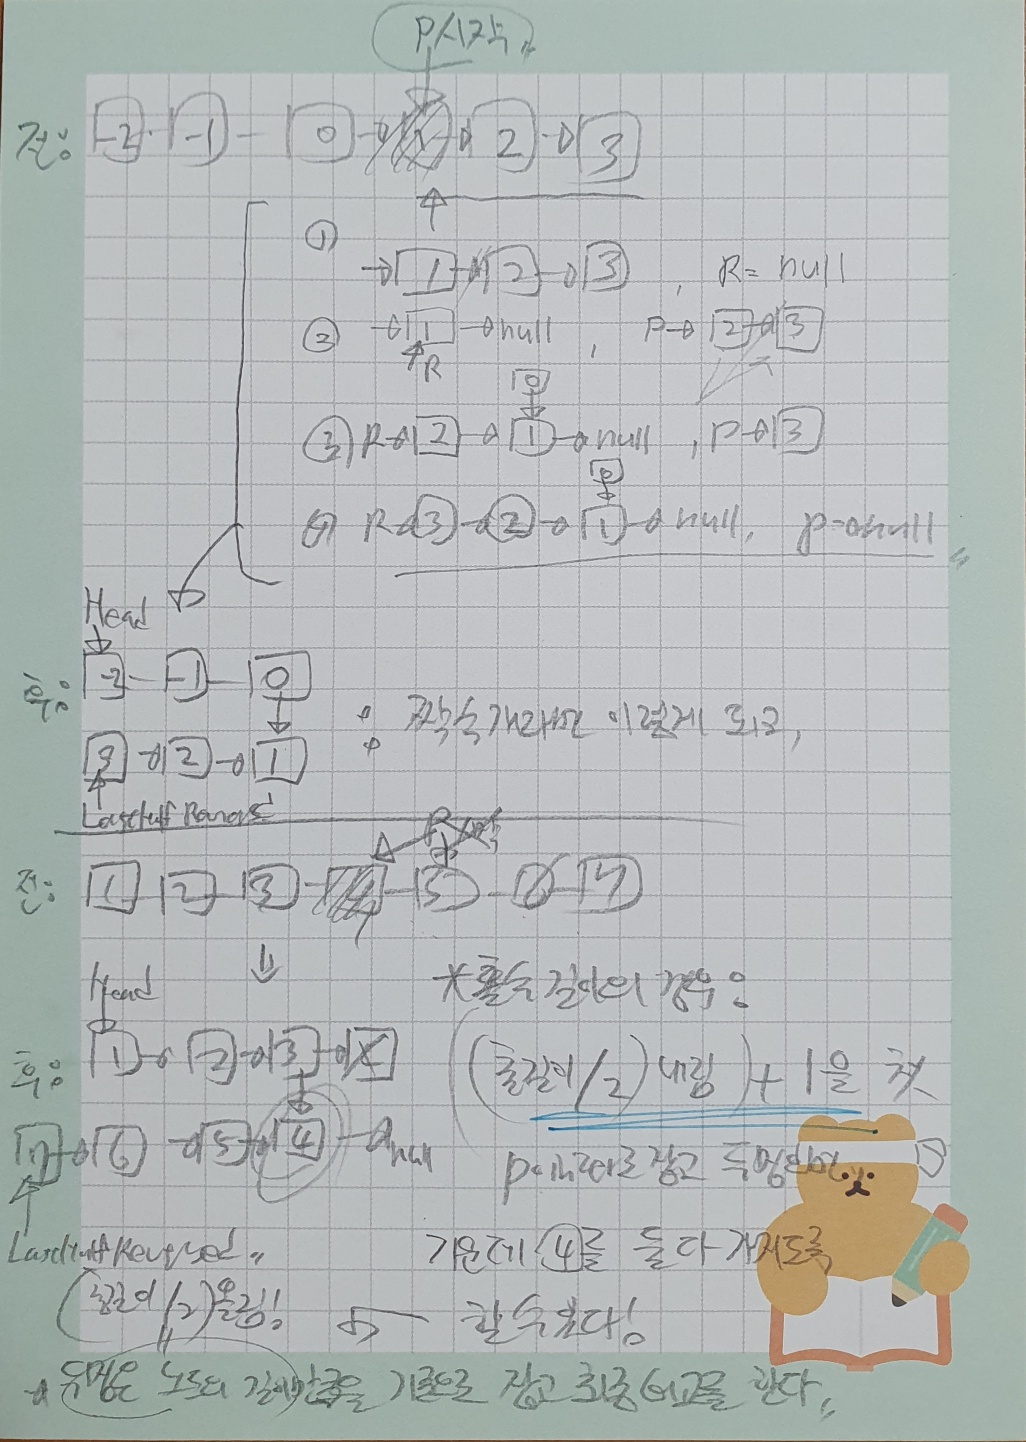 P시작
전: -2 -1 0 1 2 3
① 1 2 3 , R= null
② 1 null , P 2 3
R
0
③ R 2 1 null , P 3
0
④ R 3 2 1 null, P null
Head
후: -2 -1 0
: 짝수개라면 이렇게 되고,
3 2 1
전: 1 2 3 4 5 6 7
Head
*홀수 길이의 경우:
후: 1 2 3
(총길이/2)내림)+1을 첫
7 6 5 4 null
잡고
LastHalfReversed
가운데 4를 둘 다 가지도록
(총길이/2)올림!
할 수 있다!
노드의 길이만큼을 기준으로 잡고 최종 비교를 한다